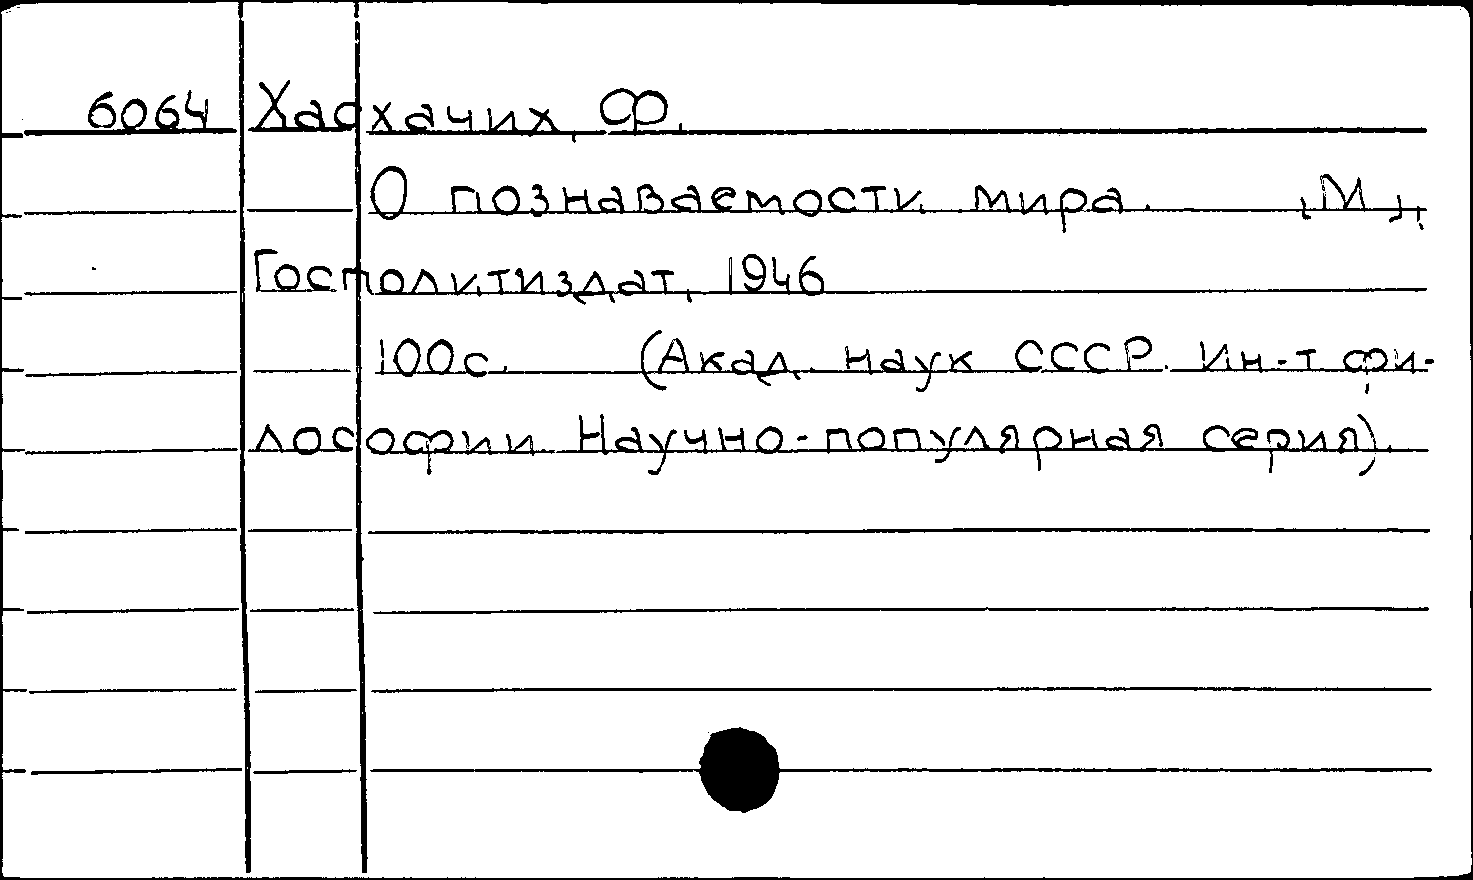 6064 Хасхачих, Ф.
О познаваемости мира. [М.],
Госполитиздат, 1946
100с. (Акад. наук СССР. Ин-т фи-
лософии Научно-популярная серия).